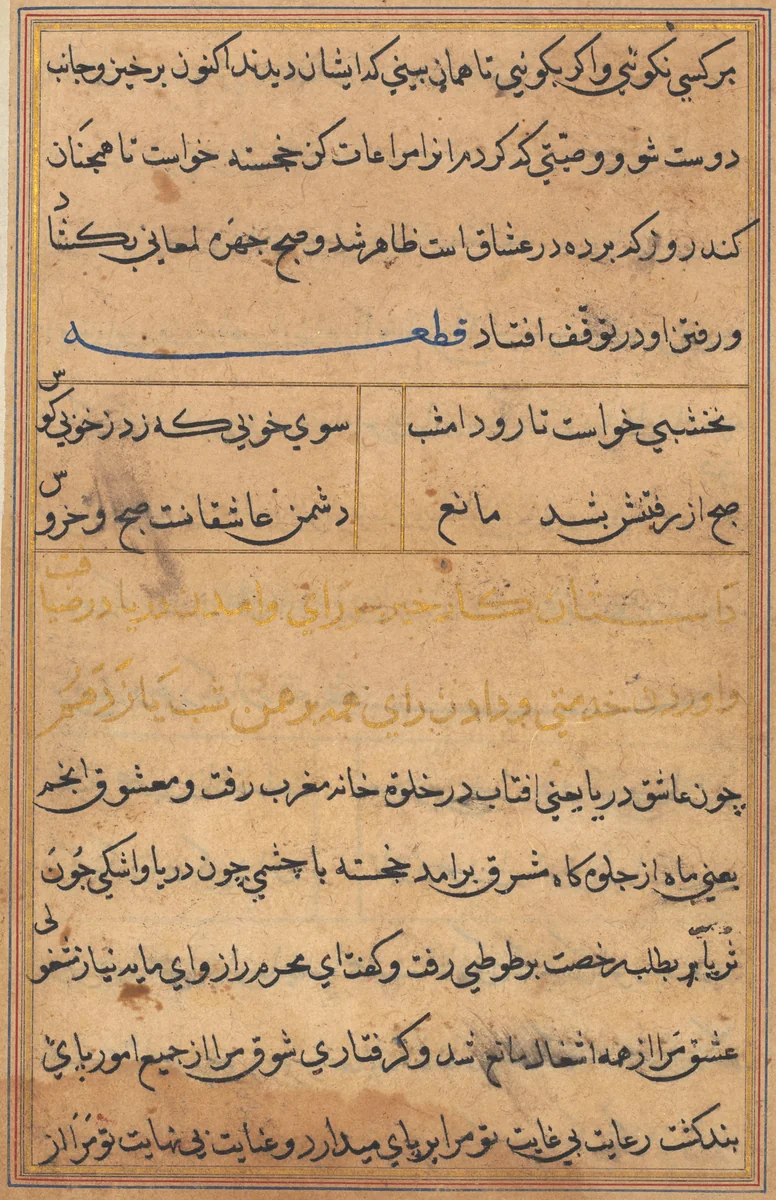 بر کسی نکوئی و اکر بکوئی تا همان بینی که ایشان دیدند اکنون برخیز و جانب
دوست شو و وصیّتی که کردم انرا مراعات کن خجسته خواست تا همچنان
کند روز که برده در عشاق است ظاهر شد و صبح جهره لمعانی بکشاد
و رفتن او در توقّف افتاد قطعه
نخشبی خواست تا رود امشب سوی خوبی که زد ز خوبی کوس
صبح از رفتنش بشد مانع دشمن عاشقانست صبح و خروس
داستان کارخیر رای و امدن دریا در ضیافت
و اوردن خدمتی و دادن رای همه برهمن شب یازدهم
چون عاشق دریا یعنی افتاب در خلوة خانه مغرب رفت و معشوق انجم
یعنی ماه از جلوه کاه مشرق برامد خجسته با چشمی چون دریا و اشکی جون
ثریا بطلب رخصت بر طوطی رفت و کفت ای محرم راز و ای مایه نیاز شغولی
عشق مرا از همه اشغال مانع شد و کرفتاری شوق مرا از جمیع امور بای
بند کشت رعایت بی غایت تو مرا بر پای میدارد و عنایت بی نهایت تو مرا از